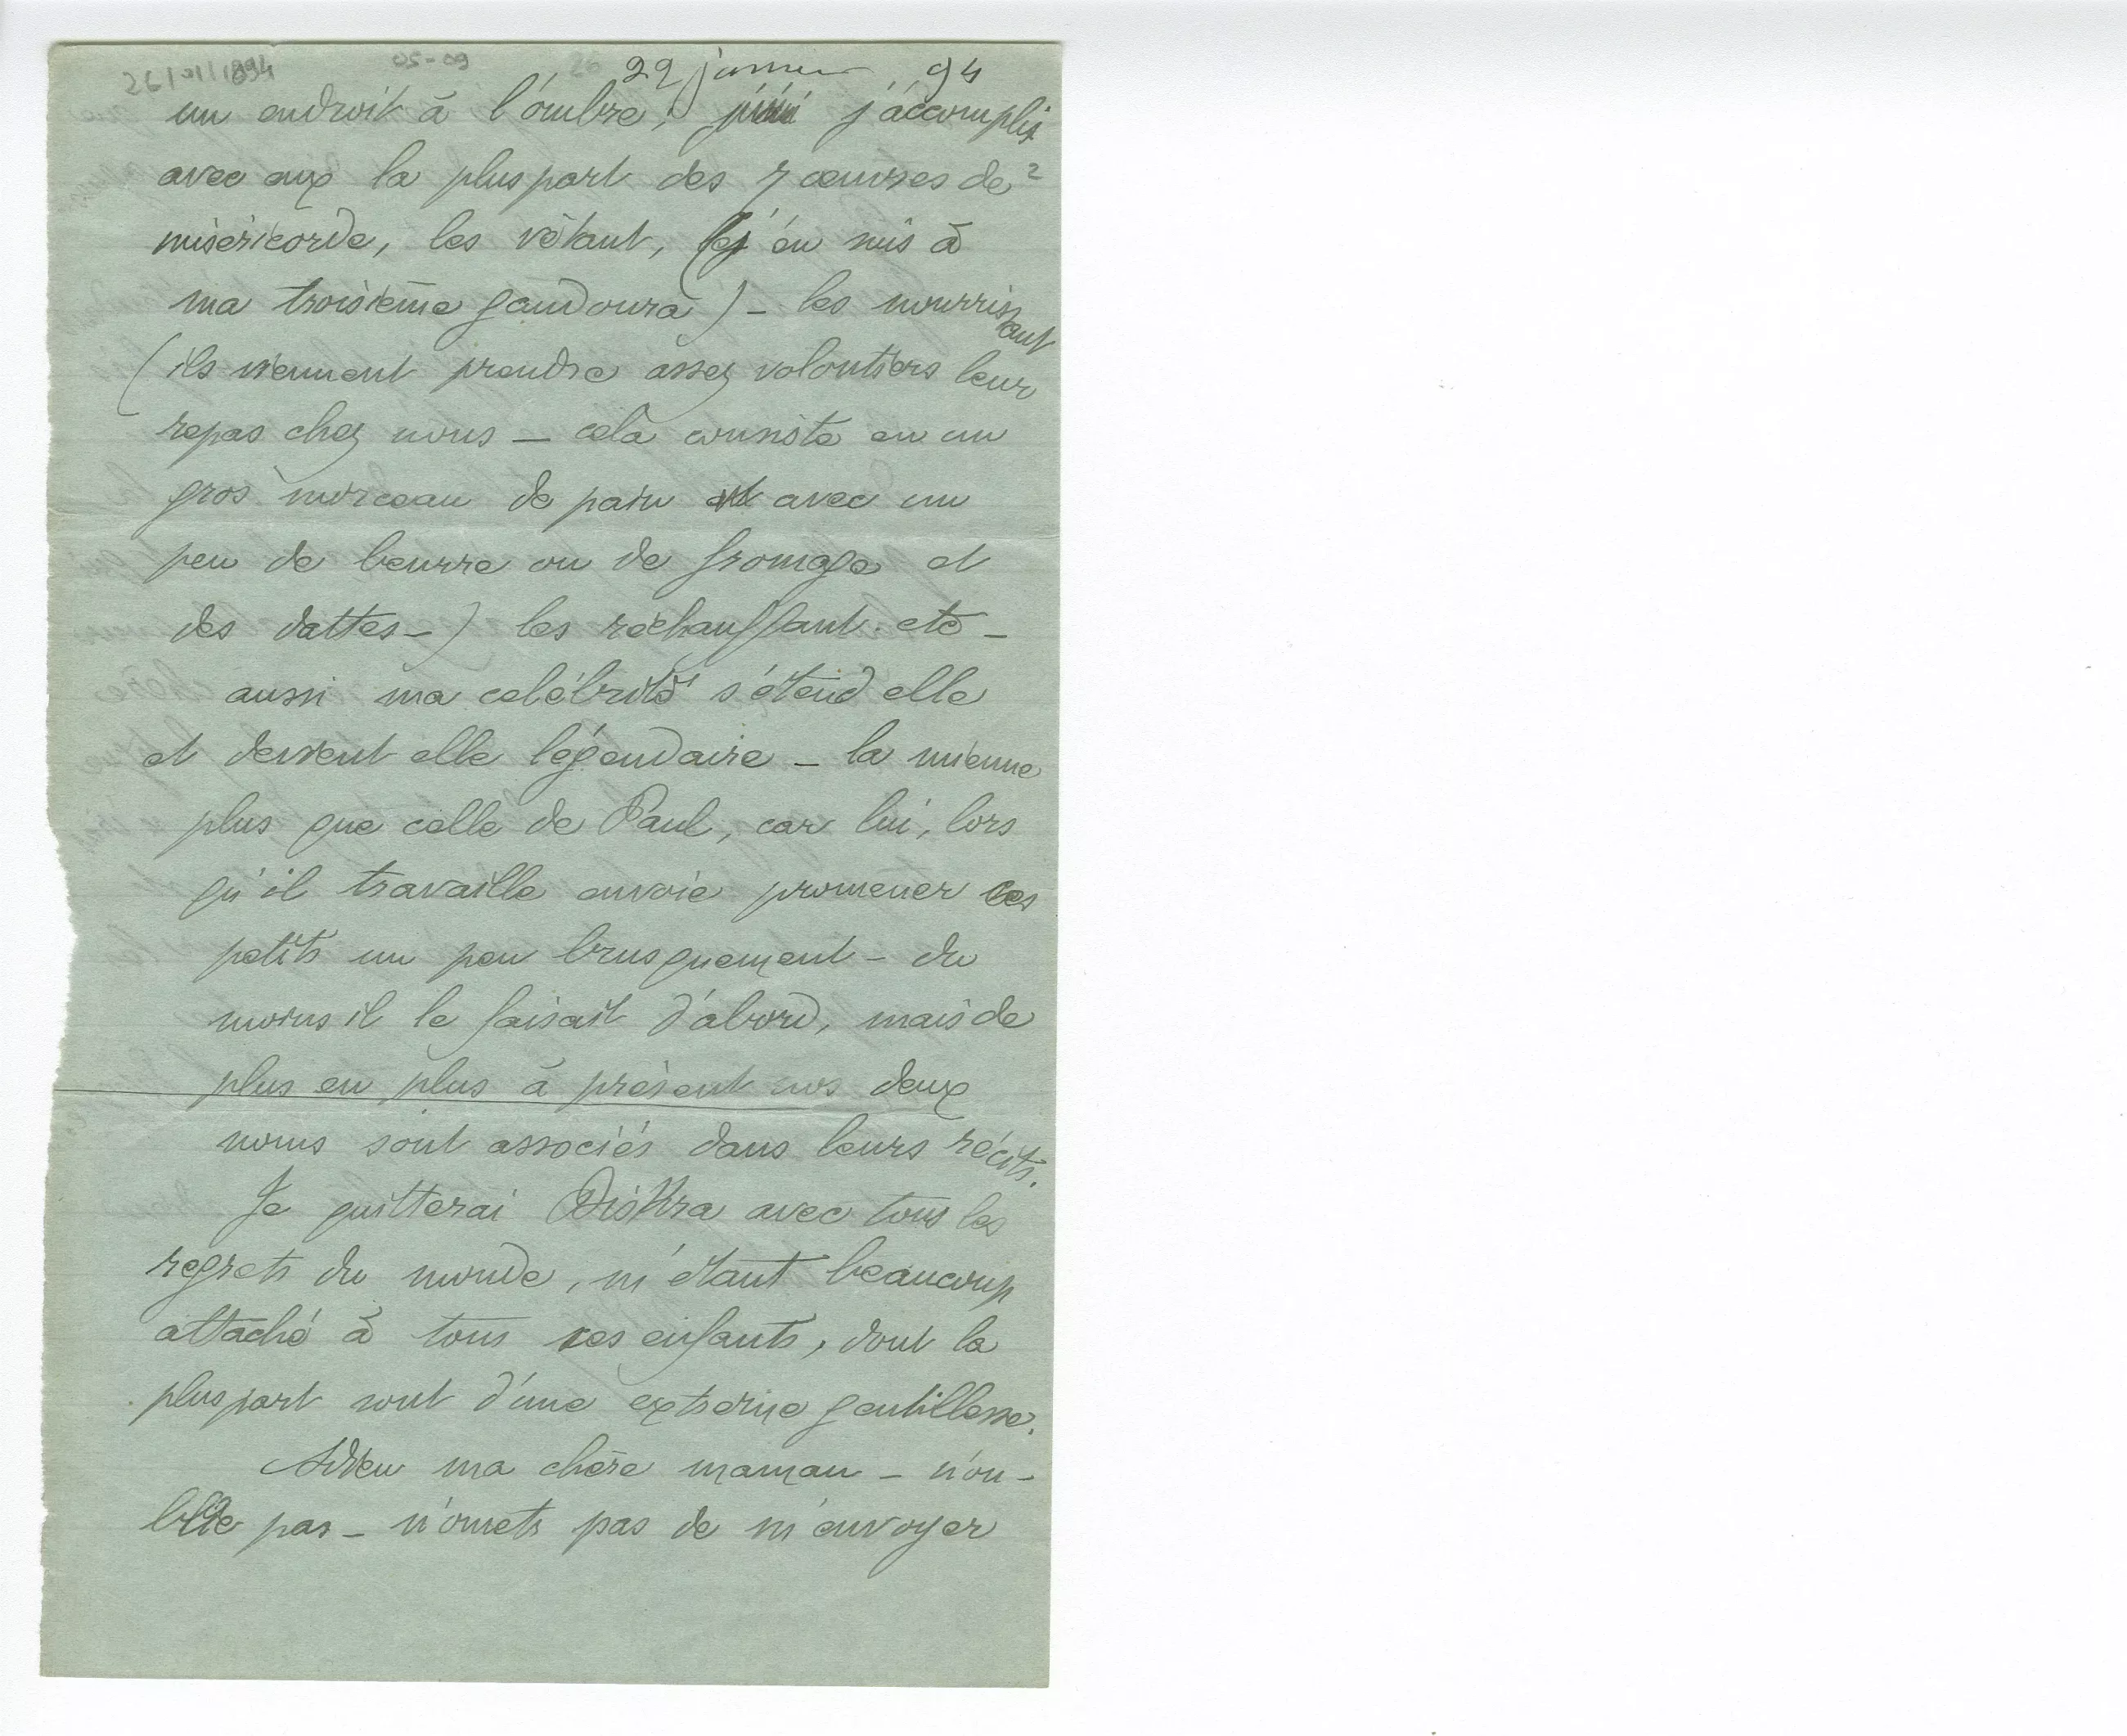 26/01/1894 05-09 26 29 janvier 94
un endroit à l'ombre, j'accomplis
avec eux la pluspart des 7 œuvres de
2
miséricorde, les vêtant, (j'en suis à
ma troisième gandoura) – les nourrissant
(ils viennent prendre assez volontiers leur
repas chez nous – cela consiste en un
gros morceau de pain avec un
peu de beurre ou de fromage et
des dattes –) les réchauffant. etc –
aussi ma célébrité s'étend elle
et devient elle légendaire – la mienne
plus que celle de Paul, car lui, lors
qu'il travaille envoie promener ces
petits un peu brusquement – du
moins il le faisait d'abord, mais de
plus en plus à présent nos deux
noms sont associés dans leurs récits.
Je quitterai Biskra avec tous les
regrets du monde, m'étant beaucoup
attaché à tous ces enfants, dont la
pluspart sont d'une extreme gentillesse.
Adieu ma chère maman – n'ou-
blie pas – n'omets pas de m'envoyer